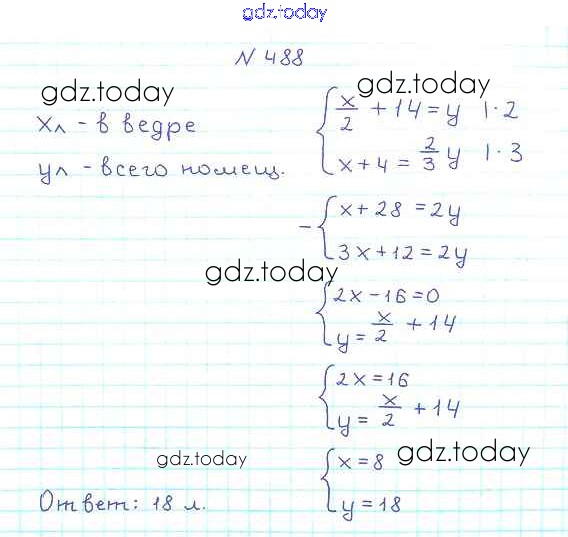 gdz.today
N 488
gdz.today
xл - в ведре
yл - всего помещ.
gdz.today
x/2 + 14 = y | · 2
x + 4 = 2/3 y | · 3
- x + 28 = 2y
3x + 12 = 2y
gdz.today
2x - 16 = 0
y = x/2 + 14
2x = 16
y = x/2 + 14
gdz.today
gdz.today
x = 8
y = 18
Ответ: 18 л.